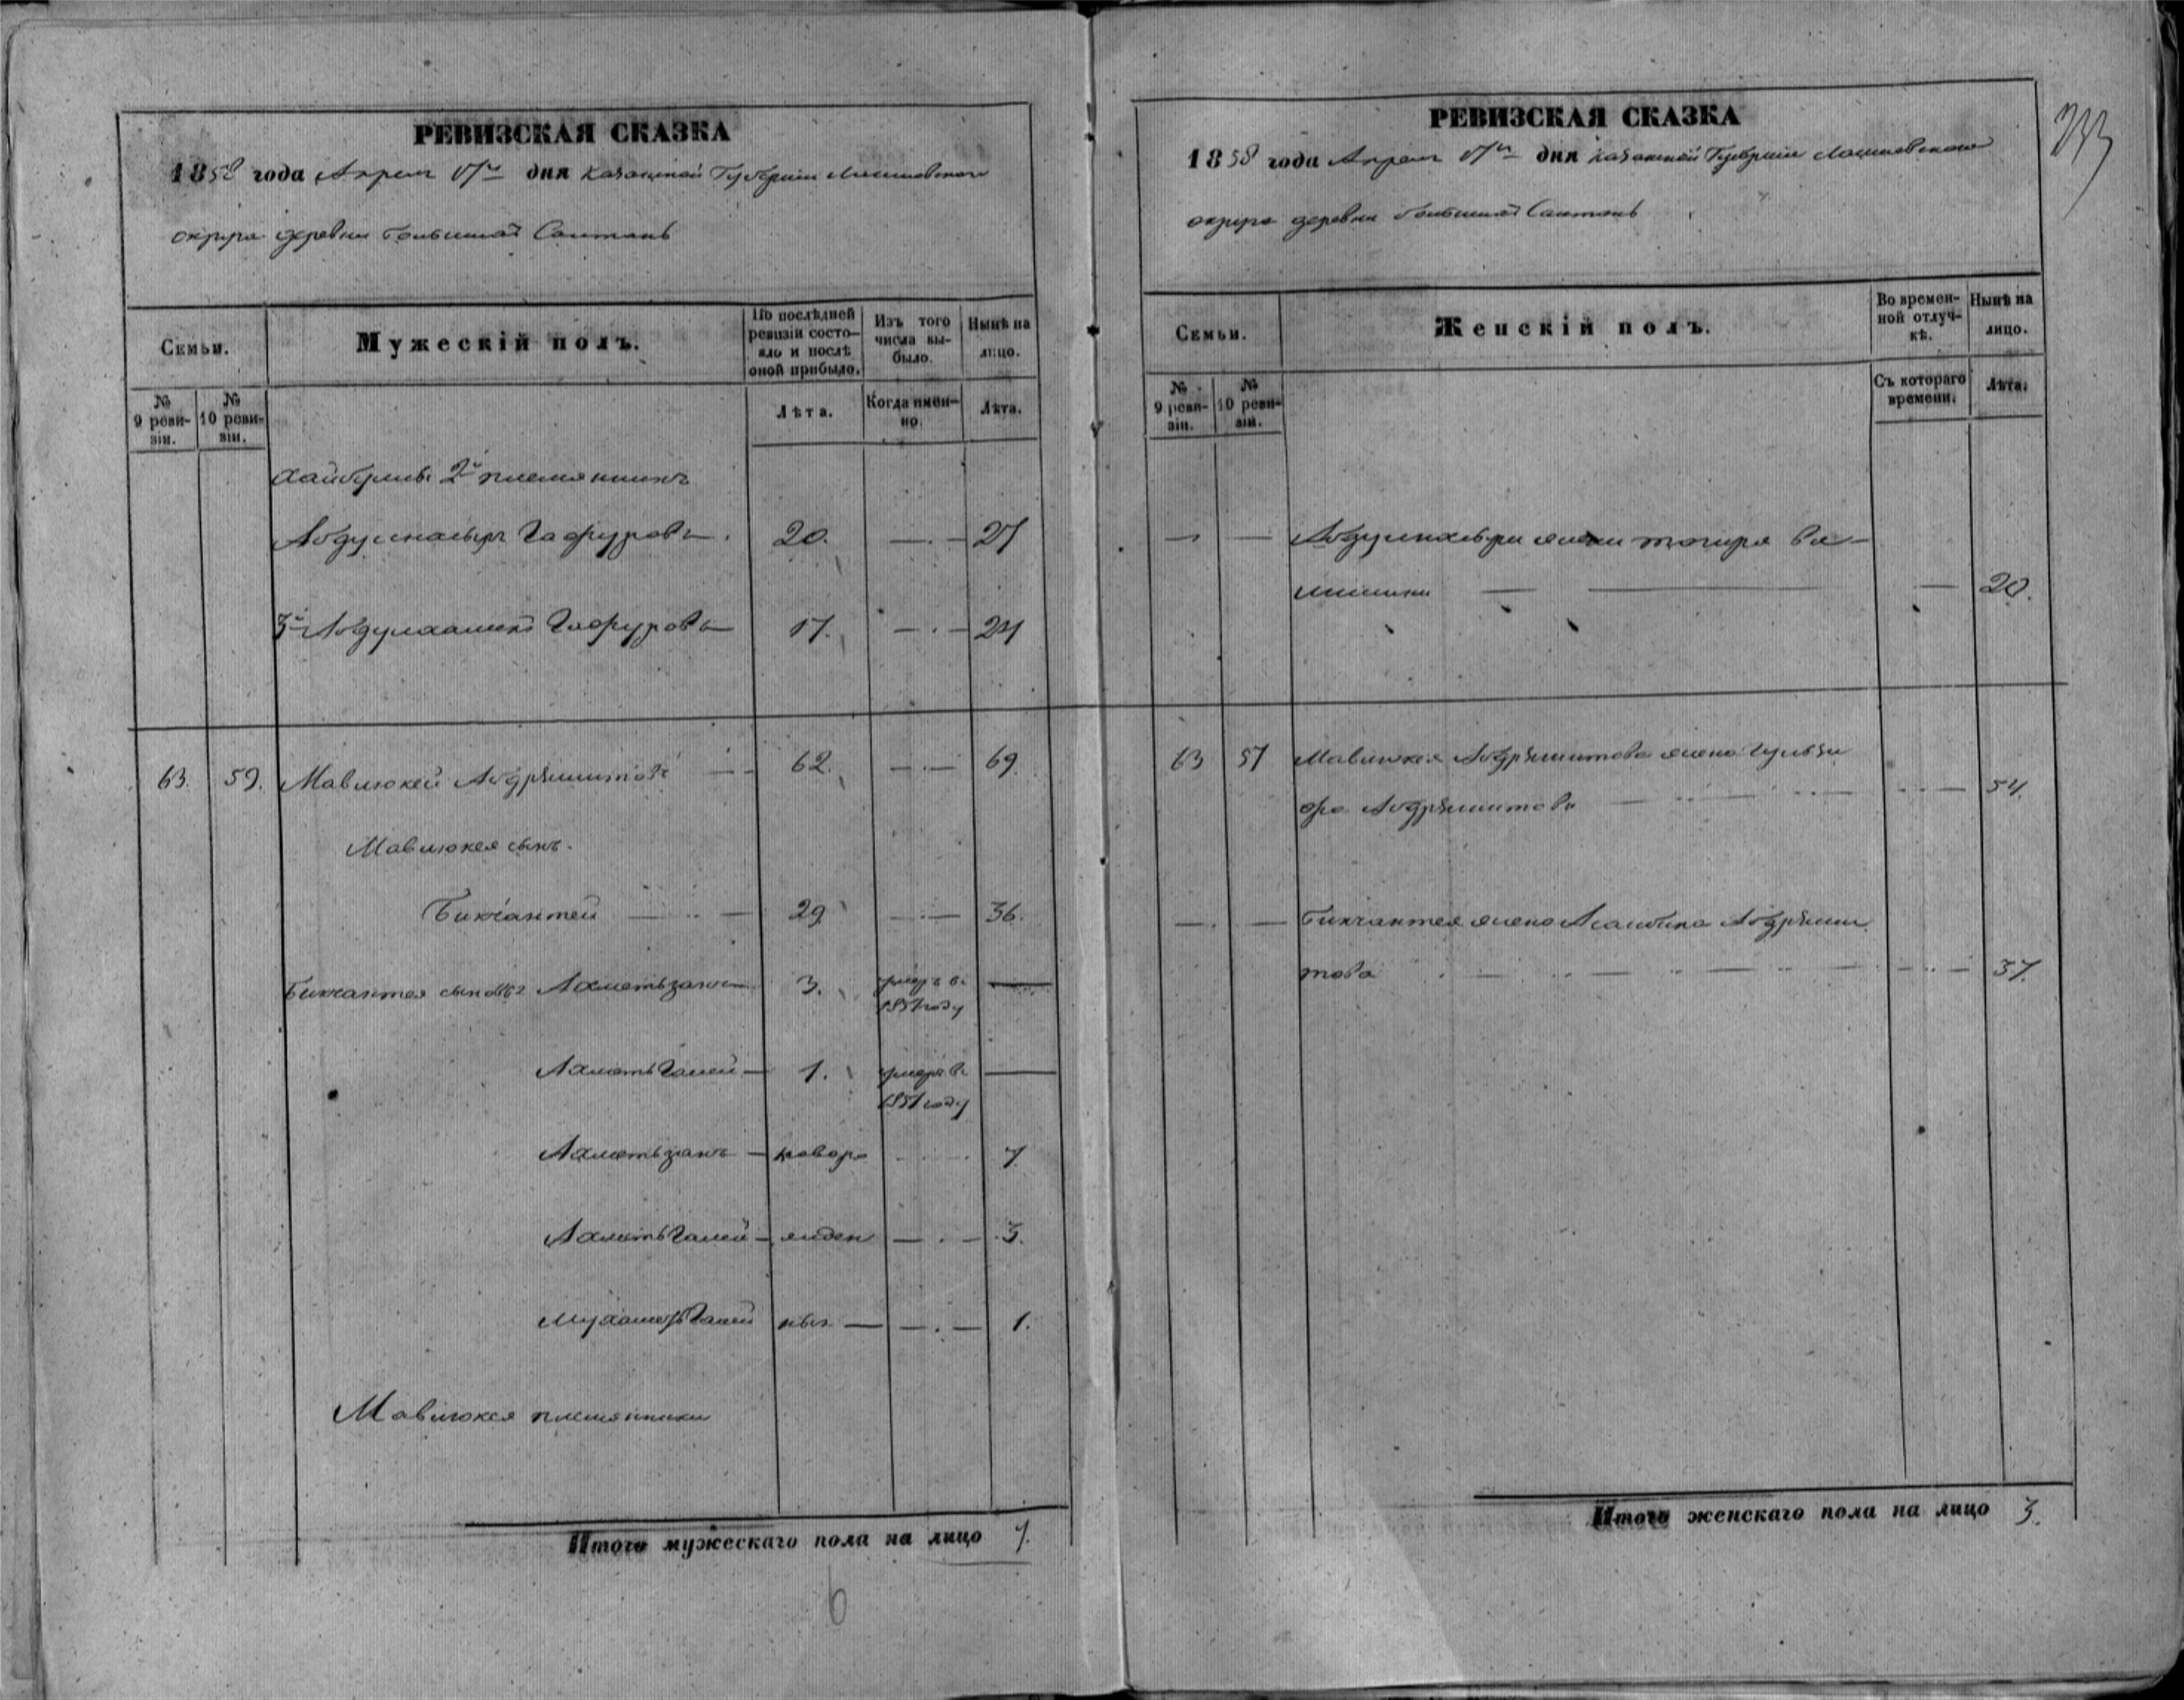 РЕВИЗСКАЯ СКАЗКА
1858 года Апреля 17го дня Казанской Губернии Лаишевского
округа деревни Большой Салтань
Семьи.
Мужескій полъ.
По послѣдней ревизіи состояло и послѣ оной прибыло.
Изъ того числа выбыло.
Нынѣ на лицо.
№ 9 ревизіи.
№ 10 ревизіи.
Лѣта.
Когда именно.
Лѣта.
2й племянникъ
Абдулнасыръ Гафуровъ 20. 27
3й Гафуровъ 17. 24
63. 59. Мавлюкей Абдряшитовъ 62. 69.
Мавлюкея сынъ.
Бикчантей 29 36.
Бикчантея сыновья Ахметьзянъ 3. умеръ въ 1851 году
Ахметьгалей 1. умеръ въ 1851 году
Ахметьзянъ новоро 7
Ахметьгалей жден 3.
Мухаметьгалей ные 1.
Мавлюкея племянники
Итого мужескаго пола на лицо 7.
6
РЕВИЗСКАЯ СКАЗКА
1858 года Апреля 17го дня Казанской Губернии Лаишевского
округа деревни Большой Салтань
Семьи.
Женскій полъ.
Во временной отлучкѣ.
Нынѣ на лицо.
№ 9 ревизіи.
№ 10 ревизіи.
Съ котораго времени.
Лѣта.
Абдулнасыра жена
20.
63 57 Мавлюкея Абдряшитова жена Гульзи
фа Абдряшитова 54.
Бикчантея жена Абдряши
това 37.
Итого женскаго пола на лицо 3.